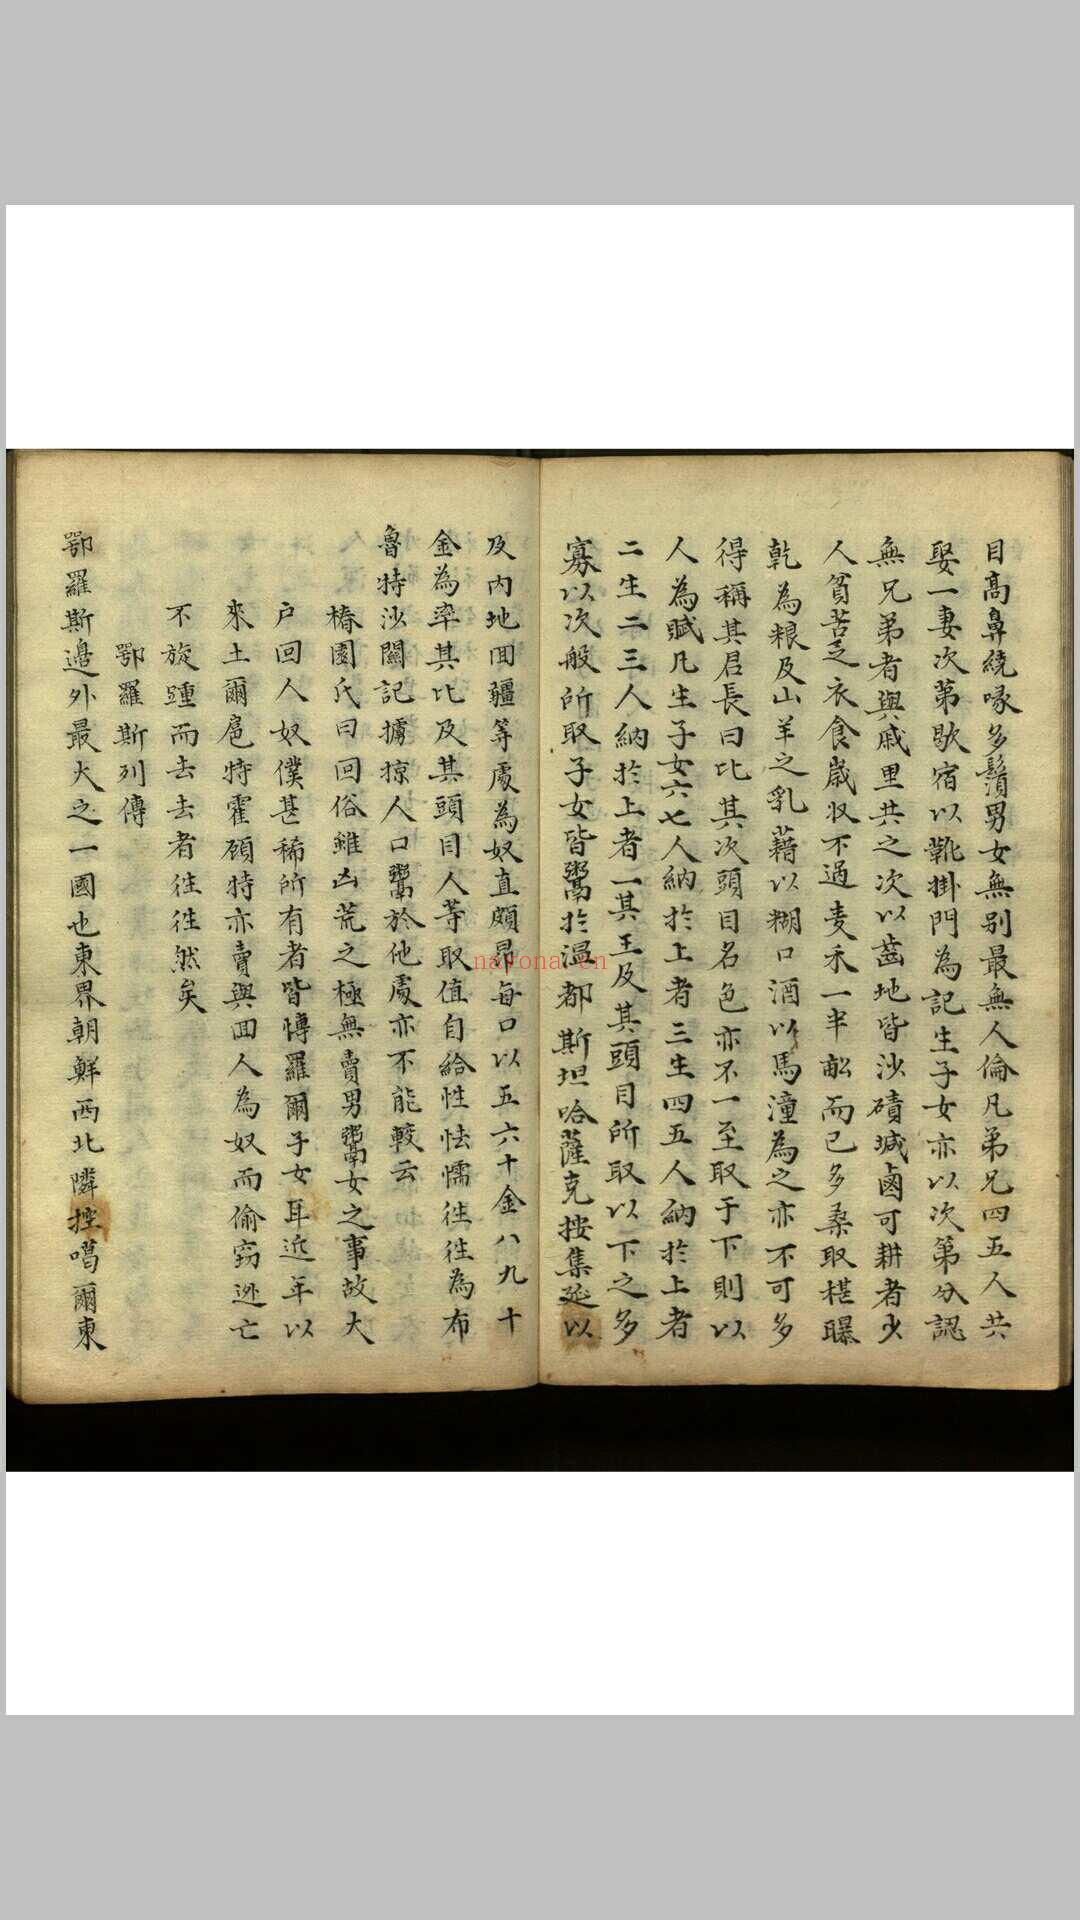 目高鼻繞喙多鬚男女無别最無人倫凡弟兄四五人共
娶一妻次第歇宿以靴掛門為記生子女亦以次第分認
無兄弟者與戚里共之次以齒地皆沙磧堿鹵可耕者少
人貧苦乏衣食歲收不過麦禾一半畝而已多桑取椹曝
乾為粮及山羊之乳藉以糊口酒以馬潼為之亦不可多
得稱其君長曰比其次頭目名色亦不一至取于下則以
人為賦凡生子女六七人納於上者三生四五人納於上者
二生二三人納於上者一其王及其頭目所取以下之多
寡以次般所取子女皆鬻於溫都斯坦哈薩克按集延以
及内地回疆等處為奴直頗昂每口以五六十金八九十
金為率其比及其頭目人等取值自給性怯懦往往為布
魯特沙關記擄掠人口鬻於他處亦不能較云
椿園氏曰回俗雖凶荒之極無賣男鬻女之事故大
户回人奴僕甚稀所有者皆愽羅爾子女耳近年以
來土爾扈特霍碩特亦賣與回人為奴而偷窃逃亡
不旋踵而去去者往往然矣
鄂羅斯列傳
鄂羅斯邉外最大之一國也東界朝鮮西北隣控噶爾東
nayona.cn